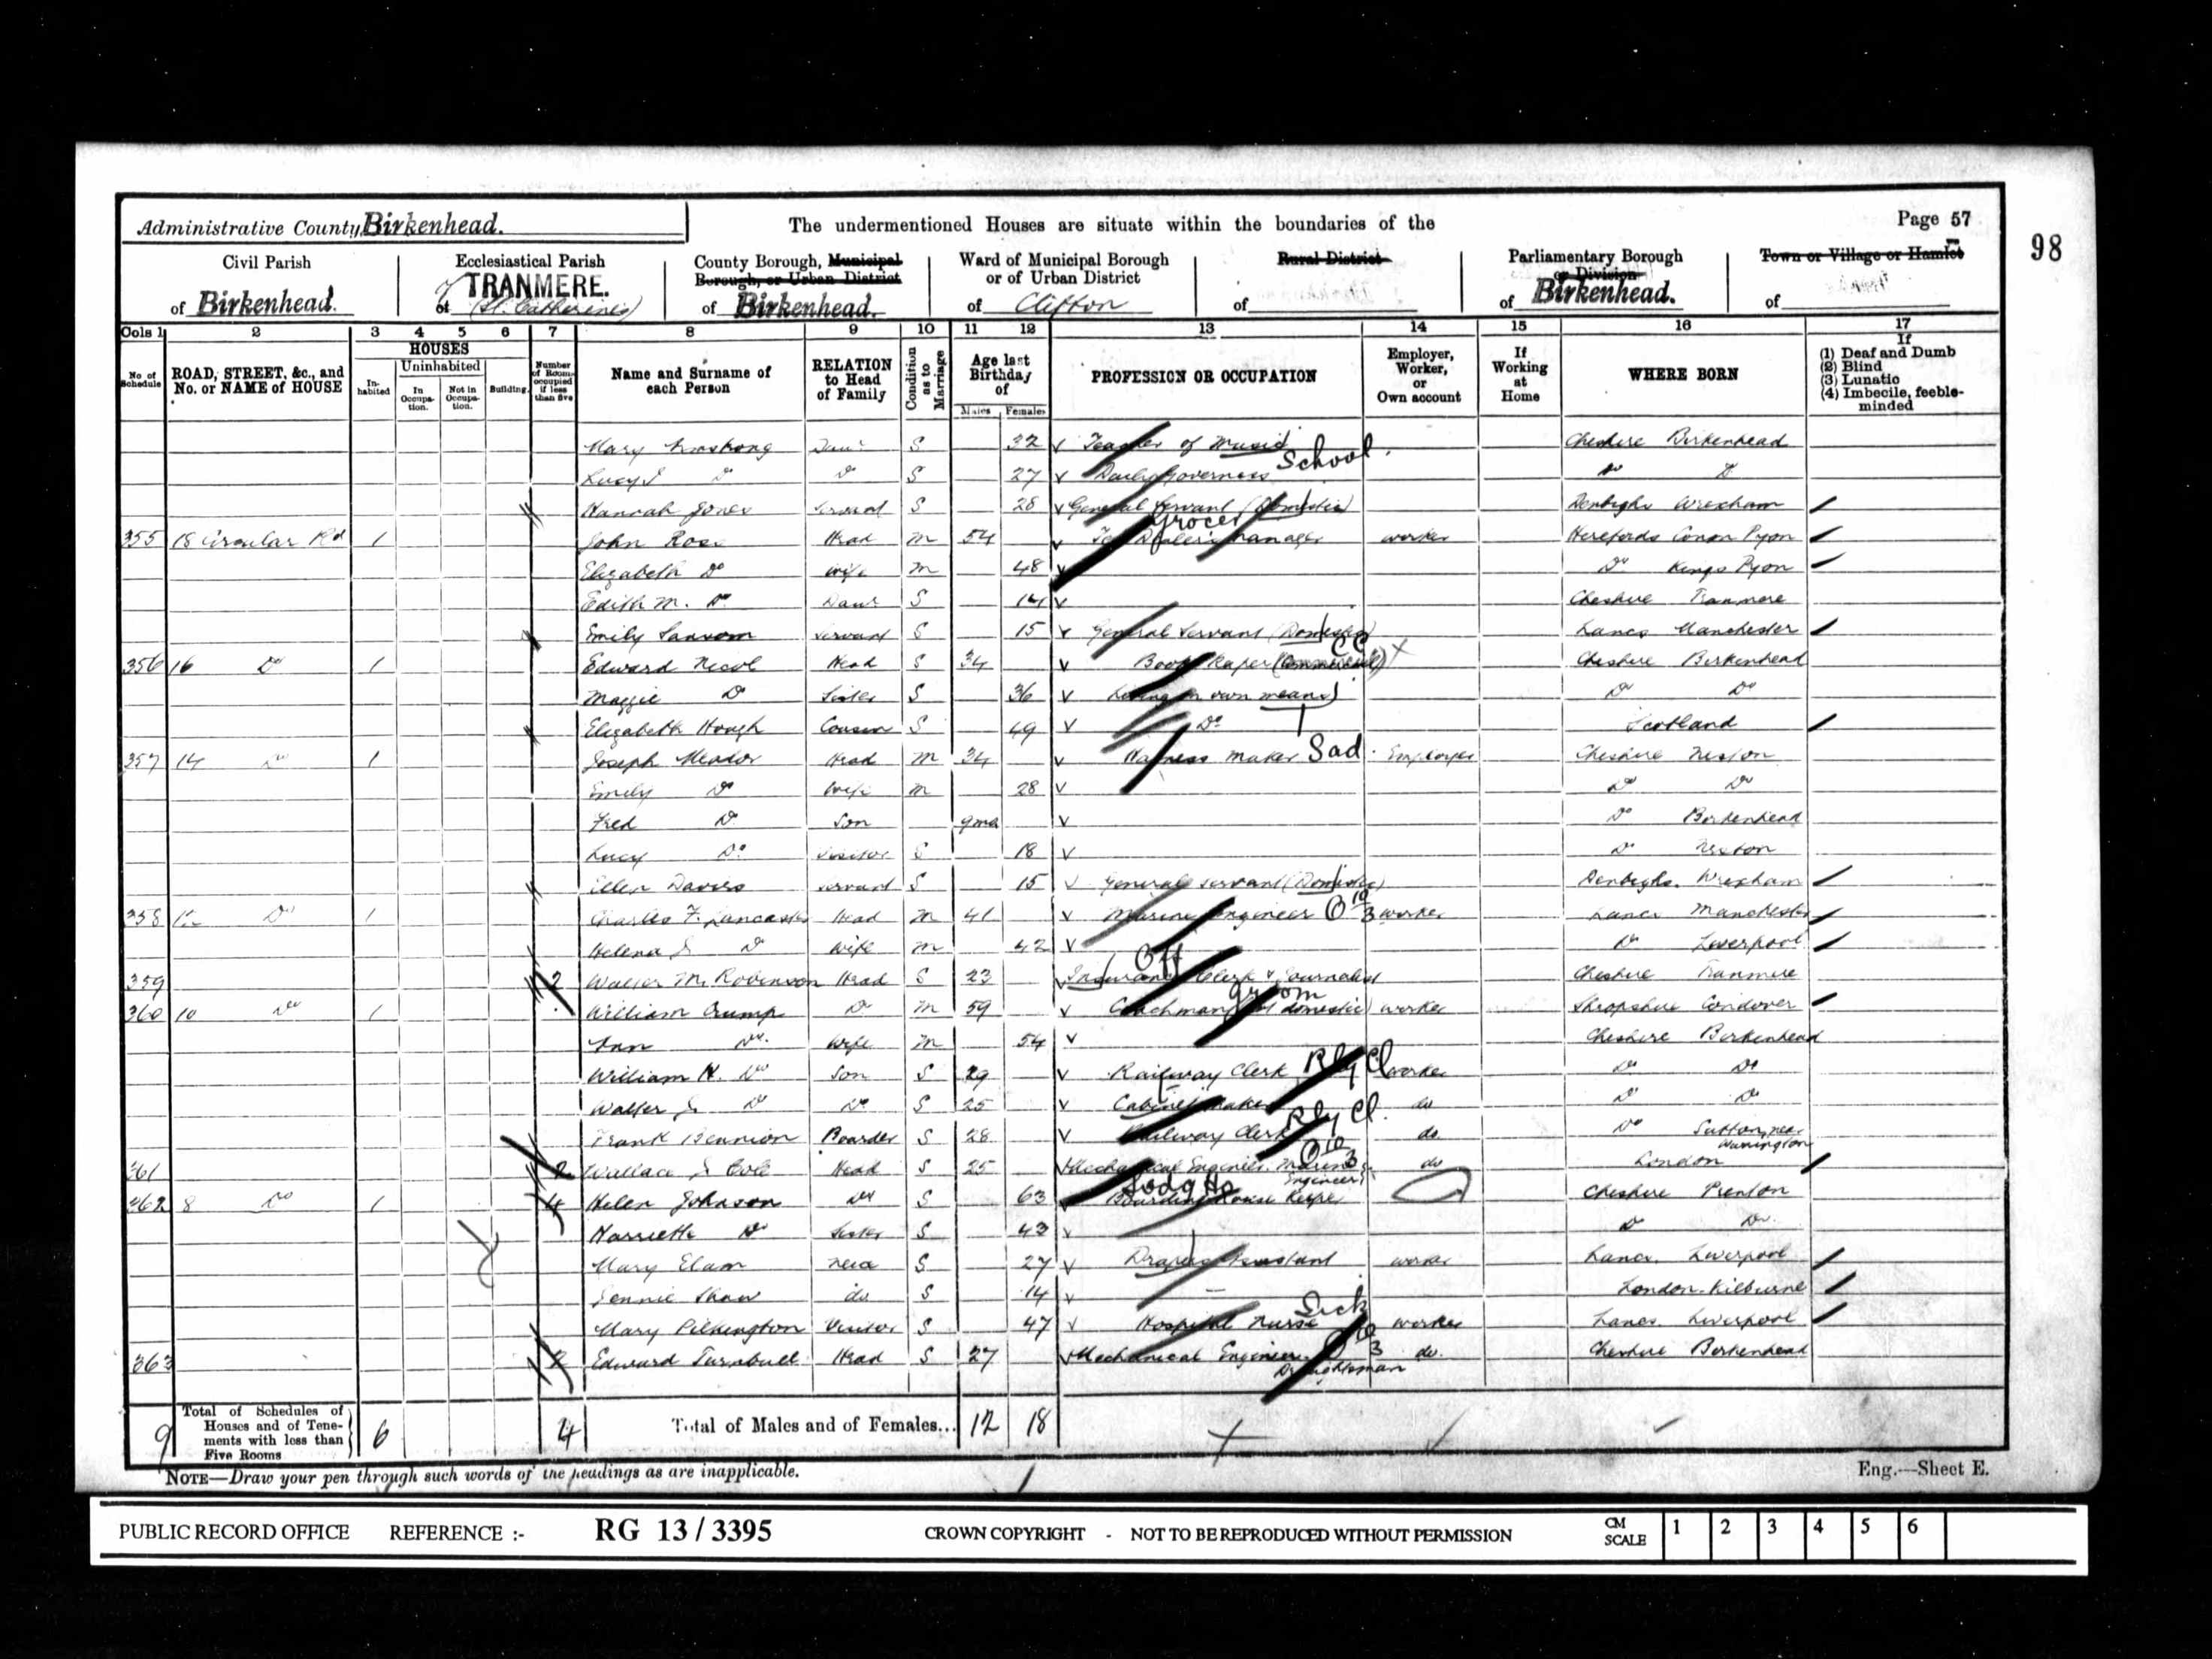 Administrative County Birkenhead.
The undermentioned Houses are situate within the boundaries of the
Page 57
98
Civil Parish of Birkenhead.
Ecclesiastical Parish of TRANMERE. (St. Catherines)
County Borough, Municipal Borough, or Urban District of Birkenhead.
Ward of Municipal Borough or of Urban District of Clifton
Rural District of
Parliamentary Borough or Division of Birkenhead.
Town or Village or Hamlet of
Cols 1 2 3 4 5 6 7 8 9 10 11 12 13 14 15 16 17
No of Schedule
ROAD, STREET, &c., and No. or NAME of HOUSE
HOUSES
In-habited
Uninhabited
In Occupa-tion.
Not in Occupa-tion.
Building.
Number of Rooms occupied if less than five
Name and Surname of each Person
RELATION to Head of Family
Condition as to Marriage
Age last Birthday of
Males Females
PROFESSION OR OCCUPATION
Employer, Worker, or Own account
If Working at Home
WHERE BORN
If
(1) Deaf and Dumb
(2) Blind
(3) Lunatic
(4) Imbecile, feeble-minded
Mary Armstrong Daur S 32 Teacher of Music Cheshire Birkenhead
Lucy Do Do S 27 Daily Governess School Do Do
Hannah Jones Servant S 28 General Servant (Domestic) Denbighs Wrexham
355 18 Circular Rd 1 John Rose Head M 54 Grocer Tea Dealer's Manager worker Herefords Canon Pyon
Elizabeth Do wife M 48 Do Kings Pyon
Edith M. Do Daur S 14 Cheshire Tranmere
Emily Sansom Servant S 15 General Servant (Domestic) Lancs Manchester
356 16 Do 1 Edward Nicol Head S 34 Book Keeper (Commercial) CC Cheshire Birkenhead
Maggie Do Sister S 36 Living on own means Do Do
Elizabeth Hough Cousin S 49 Do Scotland
357 14 Do 1 Joseph Meador Head M 34 Harness Maker Sad. Employer Cheshire Neston
Emily Do Wife M 28 Do Do
Fred Do Son 9mo Do Birkenhead
Lucy Do Visitor S 18 Do Neston
Ellen Davies Servant S 15 General Servant (Domestic) Denbighs. Wrexham
358 12 Do 1 Charles F. Lancaster Head M 41 Marine Engineer O 10 3 worker Lancs Manchester
Helena Do Wife M 42 Do Liverpool
359 2 Walter M. Robinson Head S 23 Off Insurance Clerk & Journalist Cheshire Tranmere
360 10 Do 1 William Crump Do M 59 Coachman (not domestic) groom worker Shropshire Condover
Ann Do. Wife M 54 Cheshire Birkenhead
William H. Do Son S 29 Railway Clerk Rly Cl worker Do Do
Walter Do Do S 25 Cabinet Maker do Do Do
Frank Bennion Boarder S 28 Railway Clerk Rly Cl. do Do Sutton, near Warrington
361 2 Wallace Cole Head S 25 Mechanical Engineer. Marine Engineer O 10 3 do London
362 8 Do 1 4 Helen Johnson Do S 63 Lodg Ho Boarding House Keeper Cheshire Prenton
Harriette Do Sister S 43 Do Do.
Mary Elam Niece S 27 Drapers Assistant worker Lancs. Liverpool
Jennie Shaw do S 14 — London. Kilburne
Mary Pilkington Visitor S 47 Hospital Nurse Sick worker Lancs Liverpool
363 2 Edward Turnbull Head S 27 Mechanical Engineer Draughtsman O 10 3 do. Cheshire Birkenhead
9 Total of Schedules of Houses and of Tene-ments with less than Five Rooms 6 4 Total of Males and of Females... 12 18
NOTE—Draw your pen through such words of the headings as are inapplicable.
Eng.—Sheet E.
PUBLIC RECORD OFFICE REFERENCE :- RG 13 / 3395 CROWN COPYRIGHT - NOT TO BE REPRODUCED WITHOUT PERMISSION CM SCALE 1 2 3 4 5 6